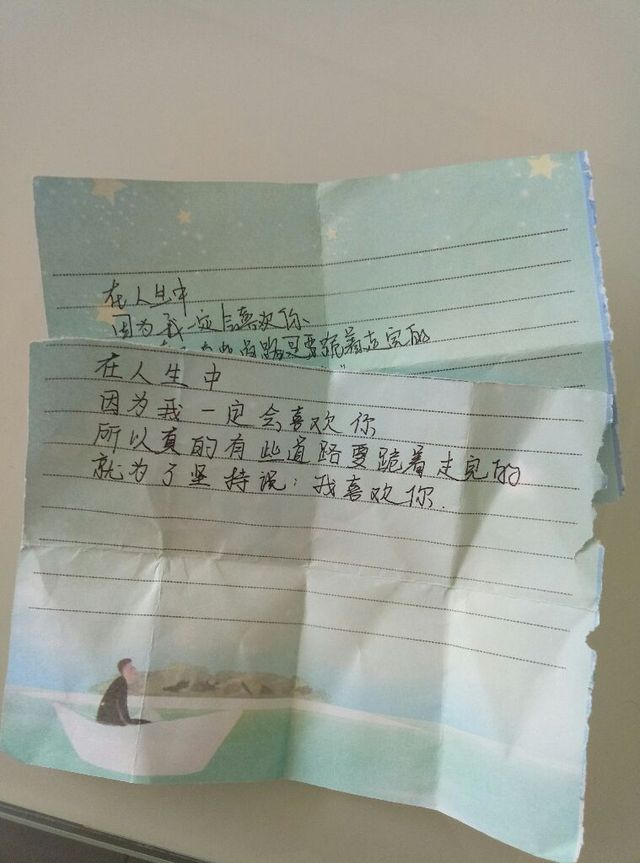 在人生中
因为我一定会喜欢你、
道路要跪着走完的
在人生中
因为我一定会喜欢你
所以真的有些道路要跪着走完的
就为了坚持说：我喜欢你.